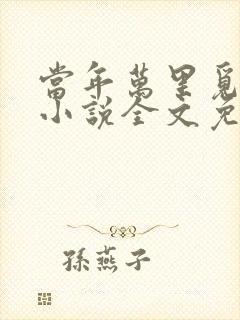 當年萬里覓
小說全文免
孫燕子